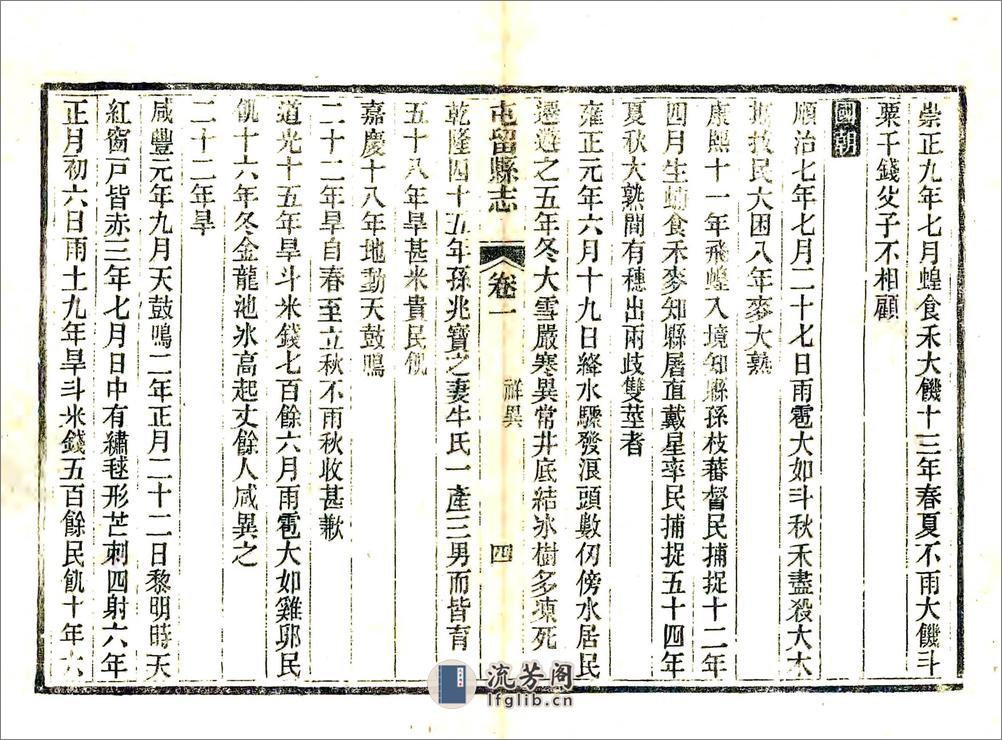 崇正九年七月蝗食禾大饑十三年春夏不雨大饑斗
粟千錢父子不相顧
國朝
順治七年七月二十七日雨雹大如斗秋禾盡殺大木
拔民大困八年麥大熟
康熙十一年飛蝗入境知縣孫枝蕃督民捕捉十二年
四月生蝻食禾麥知縣屠直戴星率民捕捉五十四年
夏秋大熟間有穗出兩歧雙莖者
雍正元年六月十九日絳水驟發浪頭數仞傍水居民
遷避之五年冬大雪嚴寒異常井底結冰樹多凍死
屯留縣志
卷一
祥異
四
乾隆四十五年孫兆寶之妻牛氏一產三男而皆育
五十八年旱甚米貴民飢
嘉慶十八年地動天鼓鳴
二十二年旱自春至立秋不雨秋收甚歉
道光十五年旱斗米錢七百餘六月雨雹大如雞卵民
飢十六年冬金龍池冰高起丈餘人咸異之
二十二年旱
咸豐元年九月天鼓鳴二年正月二十二日黎明時天
紅窗戸皆赤三年七月日中有繡毬形芒刺四射六年
正月初六日雨土九年旱斗米錢五百餘民飢十年六
流芳阁
lfglib.cn